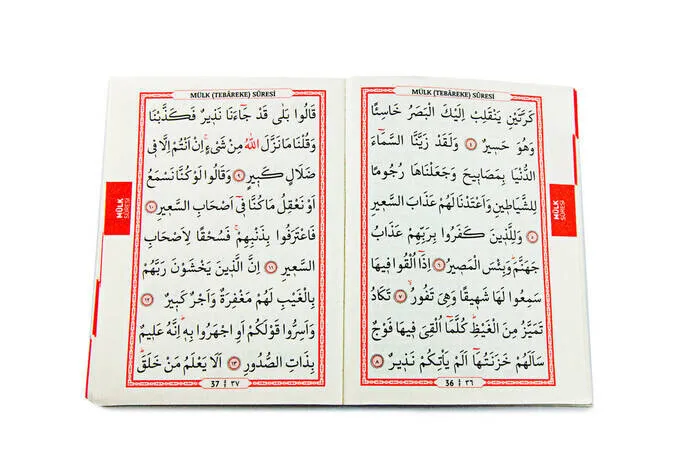 MÜLK (TEBÂREKE) SÛRESİ
كَرَّتَيْنِ يَنْقَلِبْ اِلَيْكَ الْبَصَرُ خَاسِئًا
وَهُوَ حَسِيرٌ ﴿٤﴾ وَلَقَدْ زَيَّنَّا السَّمَٓاءَ
الدُّنْيَا بِمَصَابِيحَ وَجَعَلْنَاهَا رُجُومًا
لِلشَّيَاطِينِ وَاَعْتَدْنَا لَهُمْ عَذَابَ السَّعِيرِ
﴿٥﴾ وَلِلَّذِينَ كَفَرُوا بِرَبِّهِمْ عَذَابُ
جَهَنَّمَ وَبِئْسَ الْمَصِيرُ ﴿٦﴾ اِذَٓا اُلْقُوا فِيهَا
سَمِعُوا لَهَا شَهِيقًا وَهِيَ تَفُورُ ﴿٧﴾ تَكَادُ
تَمَيَّزُ مِنَ الْغَيْظِ كُلَّمَٓا اُلْقِيَ فِيهَا فَوْجٌ
سَاَلَهُمْ خَزَنَتُهَٓا اَلَمْ يَأْتِكُمْ نَذِيرٌ ﴿٨﴾
36 ٣٦
MÜLK SÛRESİ
MÜLK (TEBÂREKE) SÛRESİ
قَالُوا بَلٰى قَدْ جَٓاءَنَا نَذِيرٌ فَكَذَّبْنَا
وَقُلْنَا مَا نَزَّلَ اللّٰهُ مِنْ شَيْءٍ اِنْ اَنْتُمْ اِلَّا فِي
ضَلَالٍ كَبِيرٍ ﴿٩﴾ وَقَالُوا لَوْ كُنَّا نَسْمَعُ
اَوْ نَعْقِلُ مَا كُنَّا فِٓي اَصْحَابِ السَّعِيرِ ﴿١٠﴾
فَاعْتَرَفُوا بِذَنْبِهِمْ فَسُحْقًا لِاَصْحَابِ
السَّعِيرِ ﴿١١﴾ اِنَّ الَّذِينَ يَخْشَوْنَ رَبَّهُمْ
بِالْغَيْبِ لَهُمْ مَغْفِرَةٌ وَاَجْرٌ كَبِيرٌ ﴿١٢﴾
وَاَسِرُّوا قَوْلَكُمْ اَوِ اجْهَرُوا بِهِ اِنَّهُ عَلِيمٌ
بِذَاتِ الصُّدُورِ ﴿١٣﴾ اَلَا يَعْلَمُ مَنْ خَلَقَ
37 ٣٧
MÜLK SÛRESİ